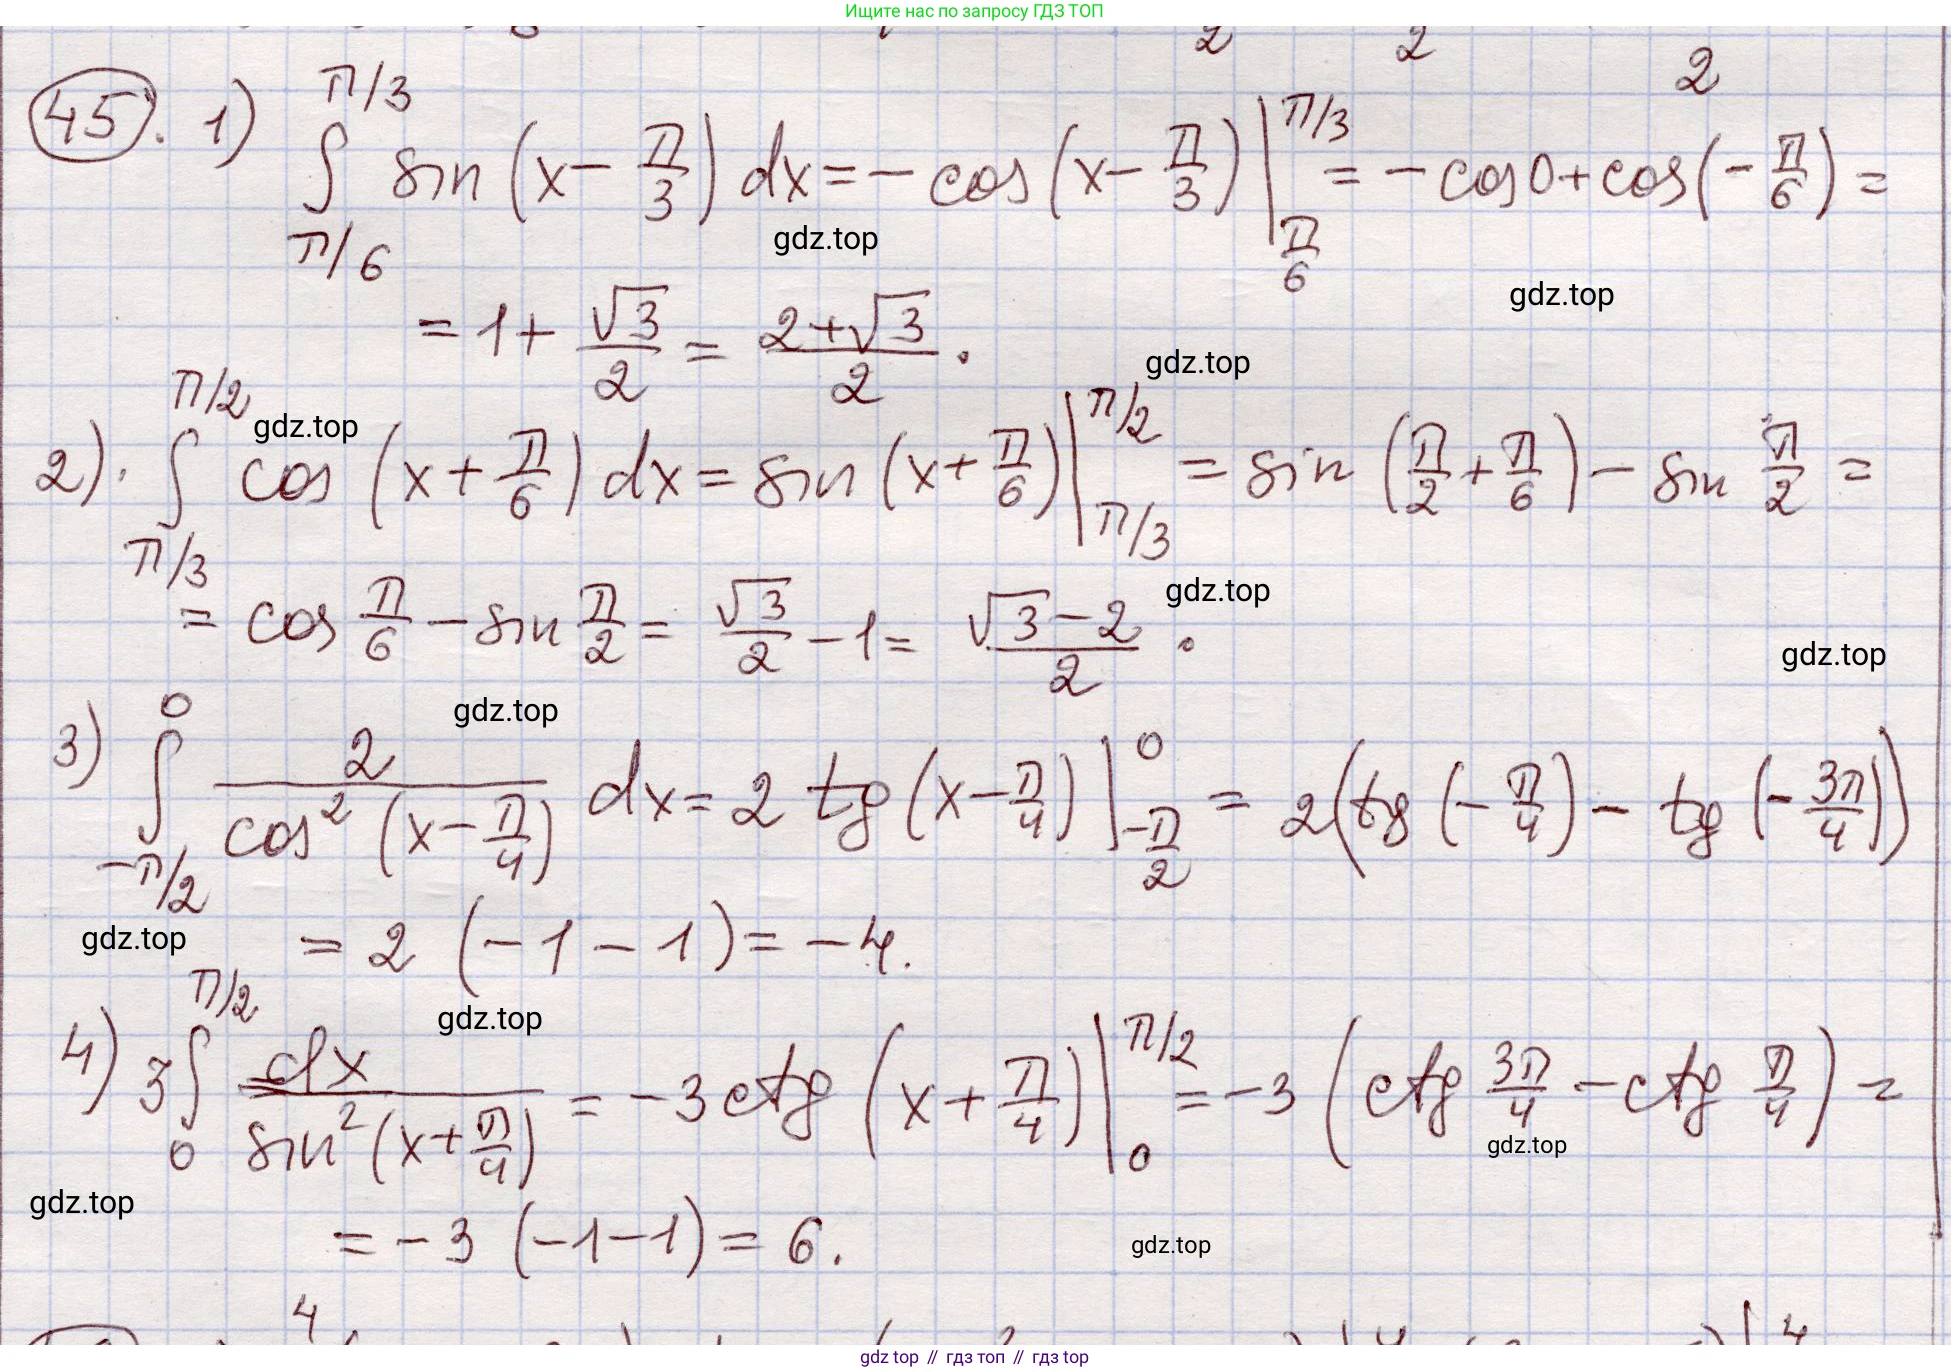 Ищите нас по запросу ГДЗ ТОП
2 2 2
45. 1) ∫_{π/6}^{π/3} sin (x − π/3) dx = − cos (x − π/3) |_{π/6}^{π/3} = − cos 0 + cos (− π/6) =
gdz.top
gdz.top
= 1 + √3/2 = (2+√3)/2 .
gdz.top
gdz.top
2). ∫_{π/3}^{π/2} cos (x + π/6) dx = sin (x + π/6) |_{π/3}^{π/2} = sin (π/2 + π/6) − sin π/2 =
gdz.top
= cos π/6 − sin π/2 = √3/2 − 1 = (√3 − 2)/2 .
gdz.top
gdz.top
3) ∫_{−π/2}^{0} 2/(cos² (x − π/4)) dx = 2 tg (x − π/4) |_{−π/2}^{0} = 2 (tg (− π/4) − tg (− 3π/4))
gdz.top
= 2 (− 1 − 1) = − 4.
gdz.top
4) 3 ∫_{0}^{π/2} dx/(sin² (x + π/4)) = − 3 ctg (x + π/4) |_{0}^{π/2} = − 3 (ctg 3π/4 − ctg π/4) =
gdz.top
gdz.top
= − 3 (− 1 − 1) = 6.
gdz.top
4 4
gdz top // гдз топ // гдз top